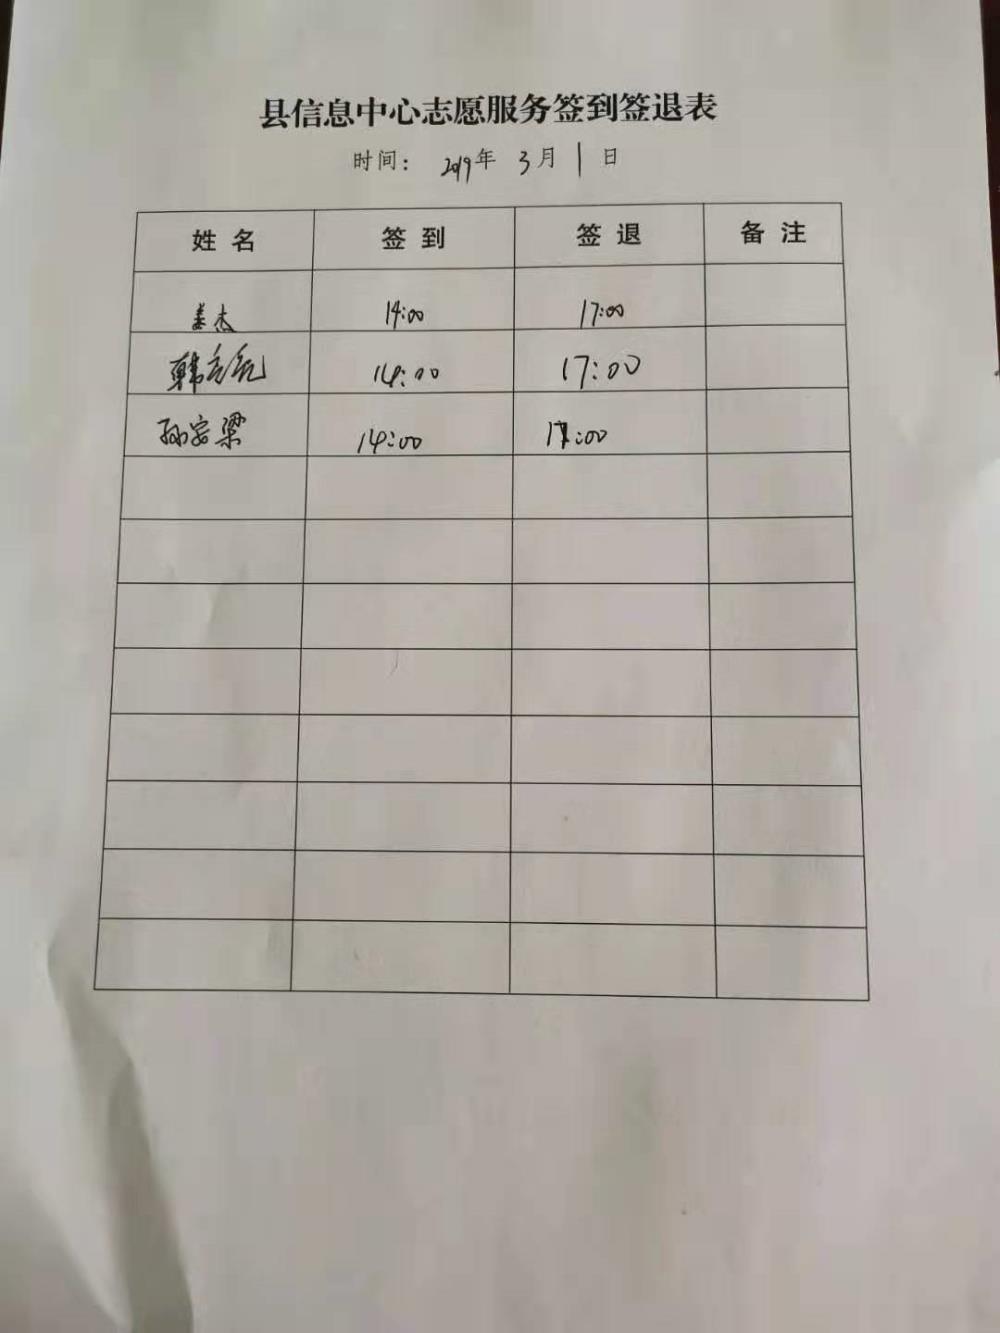 县信息中心志愿服务签到签退表
时间: 2019年 3月 1日
姓名 签到 签退 备注
姜杰 14:00 17:00
韩 14:00 17:00
孙宏梁 14:00 17:00